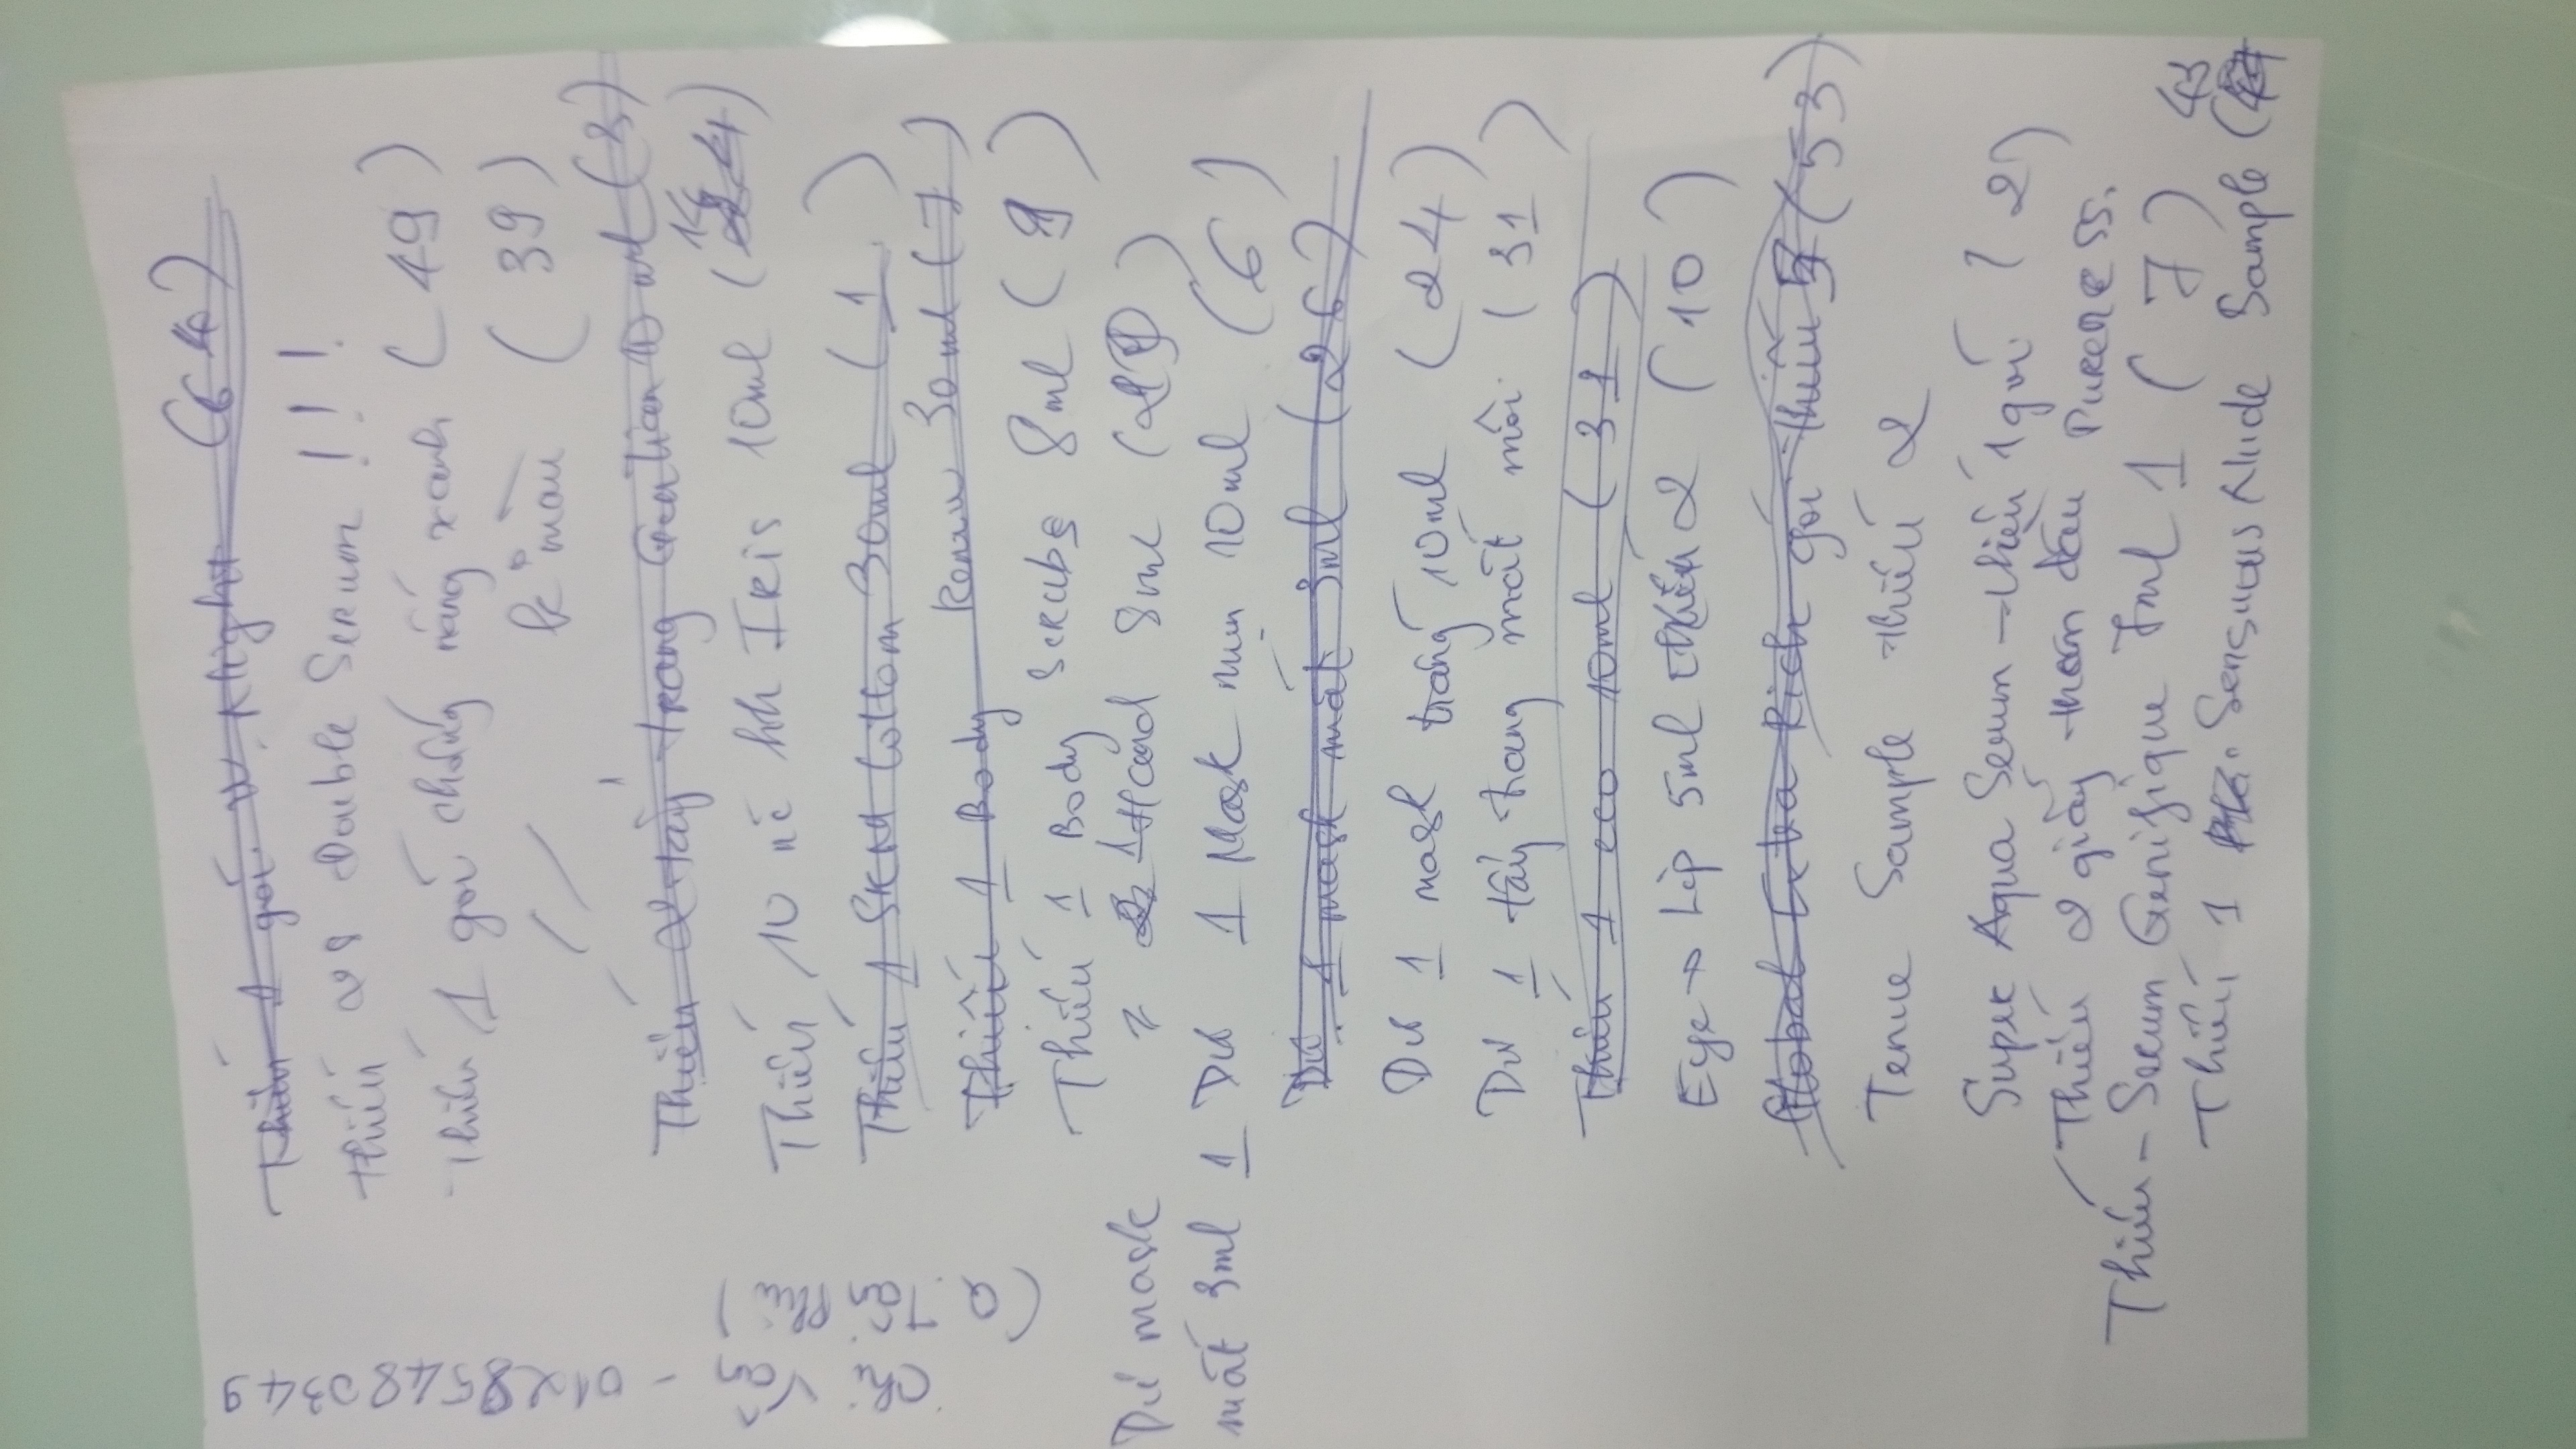 Thiếu 1 gói W. Night (64)
Thiếu 28 Double Serum !!!
Thiếu 1 gói chống nắng xanh (49)
// k° màu (39)
Thiếu 2 tẩy trang 10 ml (3)
Thiếu 10 nc hh Iris 10ml (14)
Thiếu 1 SKM Cottom 30ml (1)
Thiếu 1 Body Renew 30ml (7)
Thiếu 1 Body Scrubs 8ml (9)
1 Hand 8ml
Dư 1 Mask mụn 10ml (6)
Dư 1 mask mắt 3ml (26)
Dư 1 mask trắng 10ml (24)
Dư 1 tẩy trang mắt môi (31)
Thiếu 1 eco 10ml (31)
Eye → Lip 5ml thiếu 2 (10)
Global Extra Rich gói thiếu (53)
Tenue Sample thiếu 2
Super Aqua Serum → thiếu 1 gói (2)
Thiếu 2 giấy thấm dầu Pureness.
Thiếu - Serum Genifique 7ml 1 (7)
Thiếu 1 Sensuous Nude Sample (43
Chị Vân - 01285480349
(Q. Tân Phú)
Dư mask
mắt 3ml 1